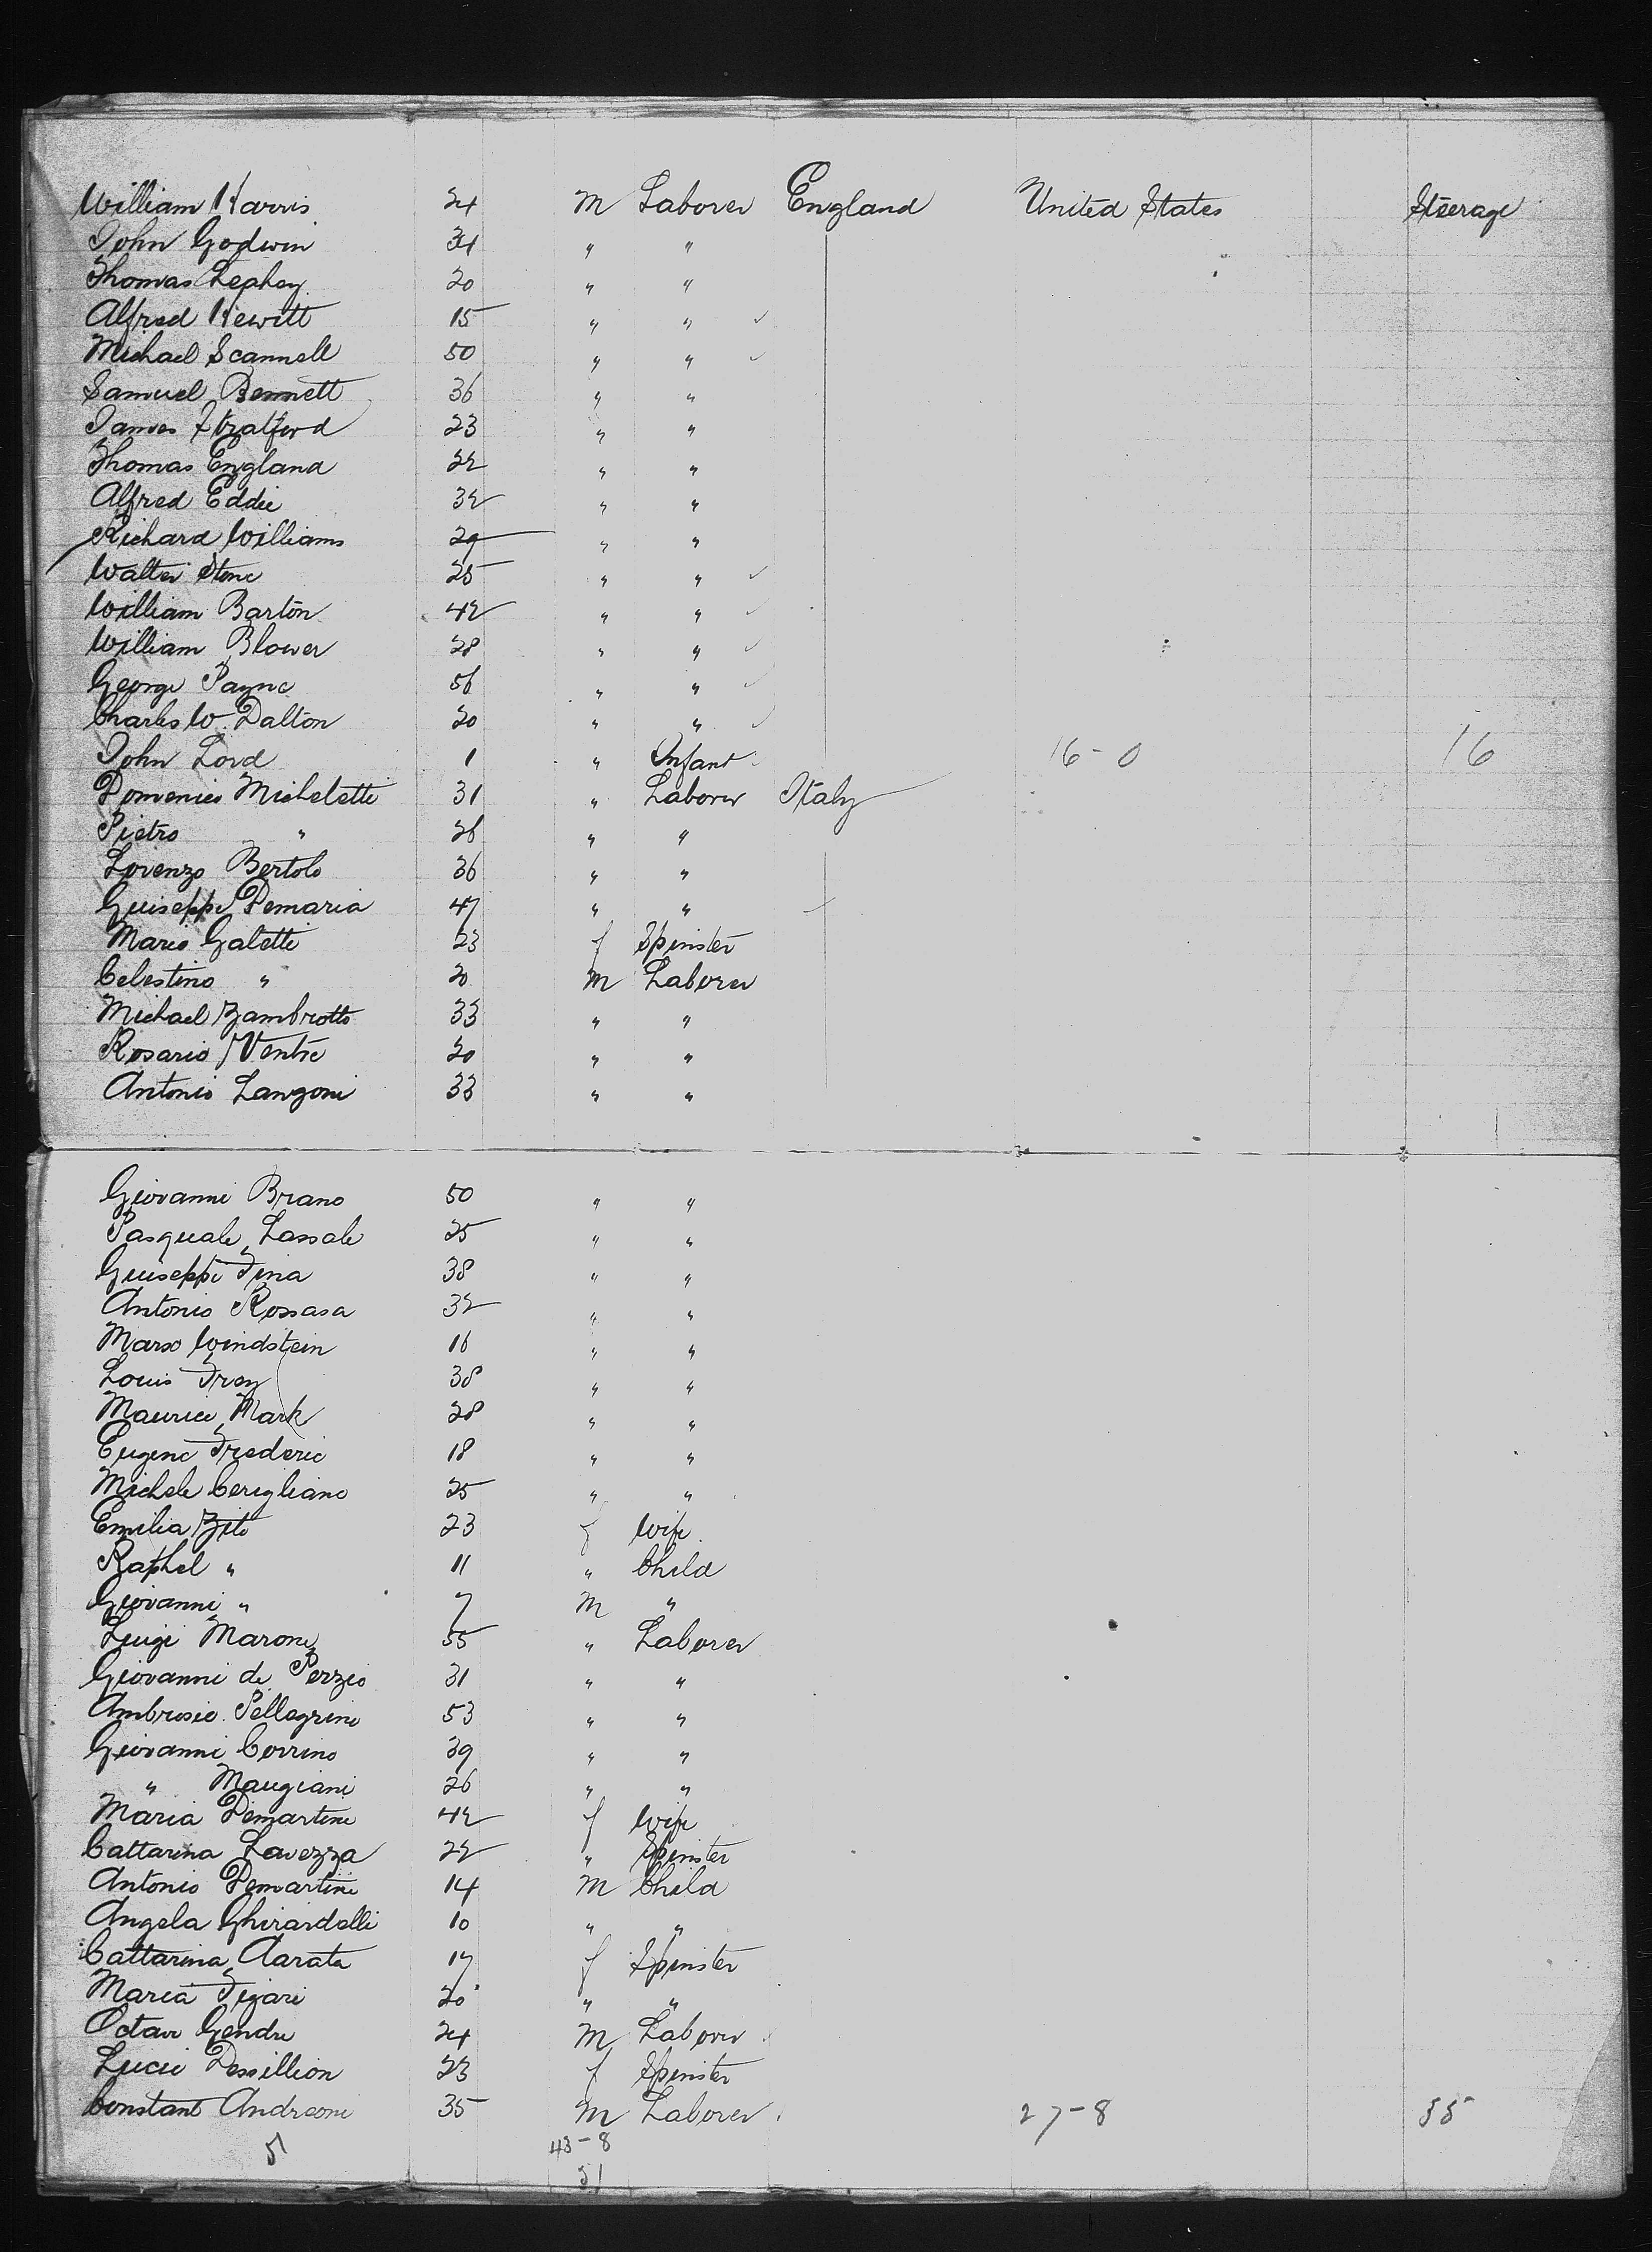 William Harris 24 M Laborer England United States Steerage
John Godwin 34 " "
Thomas Lephey 20 " "
Alfred Hewitt 15 " " ✓
Michael Scannell 50 " " ✓
Samuel Bennett 36 " "
James Stratford 23 " "
Thomas England 22 " "
Alfred Eddie 32 " "
Richard Williams 29 " "
Walter Stone 25 " " ✓
William Barton 42 " " ✓
William Blower 28 " " ✓
George Payne 56 " " ✓
Charles W. Dalton 20 " " ✓
John Lord 1 " Infant 16-0 16
Domenico Micheletti 31 " Laborer Italy
Pietro " 26 " "
Lorenzo Bertolo 36 " "
Guiseppe Demaria 47 " "
Mario Galetti 23 f Spinster
Celestino " 20 M Laborer
Michael Zambrotto 33 " "
Rosario Ventre 20 " "
Antonio Langoni 33 " "
Giovanni Brano 50 " "
Pasquale Lassale 25 " "
Guiseppe Fina 38 " "
Antonio Rossasa 32 " "
Marx Windstein 16 " "
Louis Frey 38 " "
Maurice Mark 28 " "
Eugene Frederic 18 " "
Michele Cerigliano 25 " "
Emilia Zito 23 f Wife
Raphel " 11 " Child
Giovanni " 7 M "
Luigi Marone 55 " Laborer
Giovanni de Perzio 31 " "
Ambrosio Pellegrini 53 " "
Giovanni Corrino 39 " "
" Maugiani 26 " "
Maria Demartini 42 f Wife
Cattarina Lavezza 22 " Spinster
Antonio Demartini 14 M Child
Angela Ghirardelli 10 " "
Cattarina Aarata 17 f Spinster
Maria Figari 20 " "
Octave Gendre 24 M Laborer
Lucie Dessillion 23 f Spinster
Constant Andreoni 35 M Laborer 27-8 35
51 43-8
51